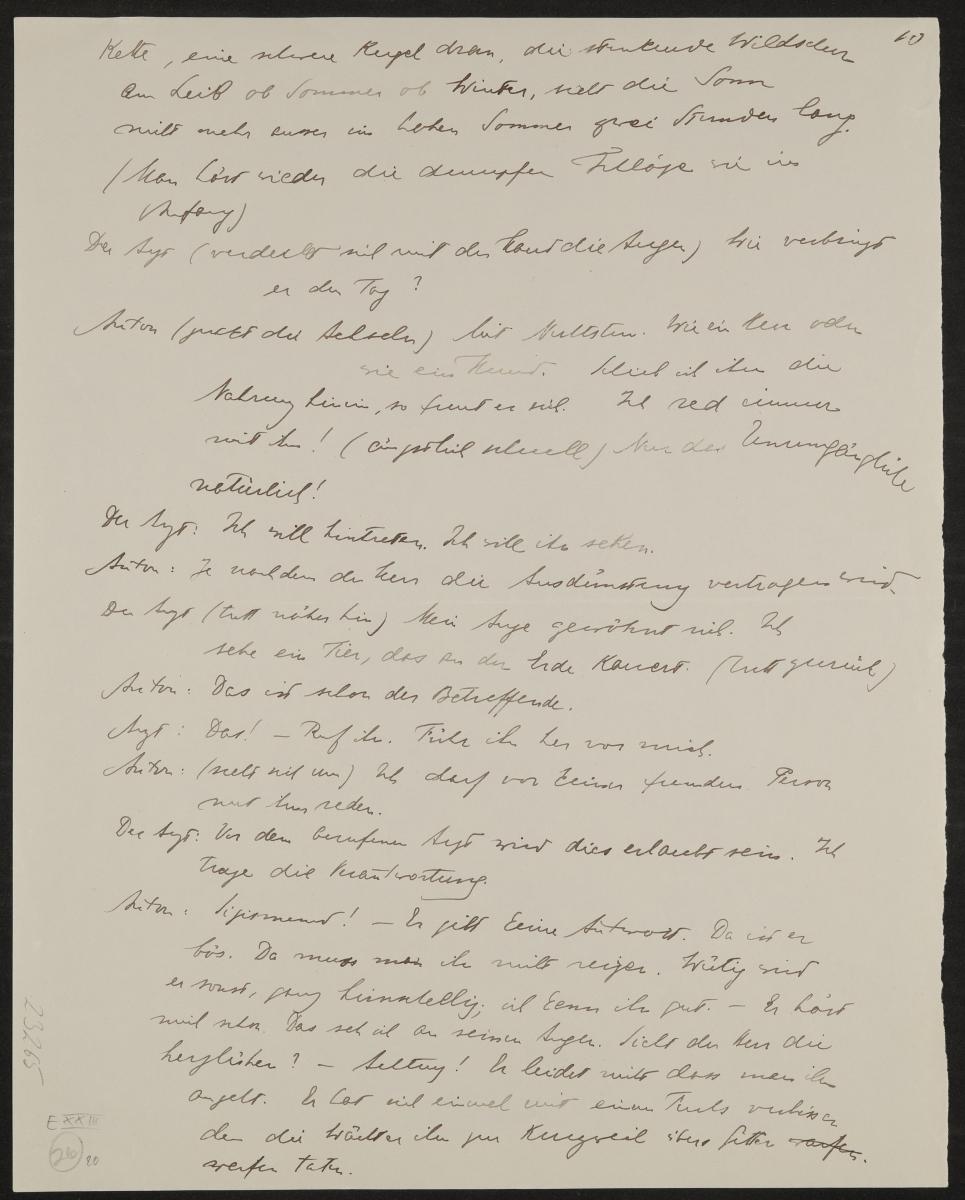 10
Kette, eine schwere Kugel dran, die stinkende Wildschur
am Leib ob Sommer ob Winter, sieht die Sonn
nicht mehr ausser im hohen Sommer zwei Stunden lang.
(Man hört wieder die dumpfen Schläge wie im
Anfang)
Der Arzt (verdeckt sich mit der Hand die Augen) Wie verbringt
er den Tag?
Anton (zuckt die Achseln) Mit Nichtstun. Wie ein Herr oder
wie ein Hund. Schieb ich ihm die
Nahrung hinein, so freut er sich. Ich red immer
mit ihm! (ängstlich schnell) Nur das Unumgängliche
natürlich!
Der Arzt: Ich will hintreten. Ich will ihn sehen.
Anton: Je nachdem der Herr die Ausdünstung vertragen wird.
Der Arzt (tritt näher hin) Mein Auge gewöhnt sich. Ich
sehe ein Tier, das an der Erde kauert. (tritt zurück)
Anton: Das ist schon der Betreffende.
Arzt: Das! – Ruf ihn. Führ ihn her vor mich.
Anton: (sieht sich um) Ich darf vor keiner fremden Person
mit ihm reden.
Der Arzt: Vor dem berufenen Arzt wird dies erlaubt sein. Ich
trage die Verantwortung.
Anton: Sigismund! – Er gibt keine Antwort. Da ist er
bös. Da muss man ihn nicht reizen. Wütig wird
er sonst, ganz hirnschellig; ich kenn ihn gut. – Er hört
mich schon. Das seh ich an seinen Augen. Sieht der Herr die
herglühen? – Achtung! Er leidet nicht dass man ihn
angeht. Er hat sich einmal mit einem Fuchs verbissen
den die Wächter ihm zur Kurzweil übers Gitter warfen.
werfen taten.
23265
E XXIII
26
20